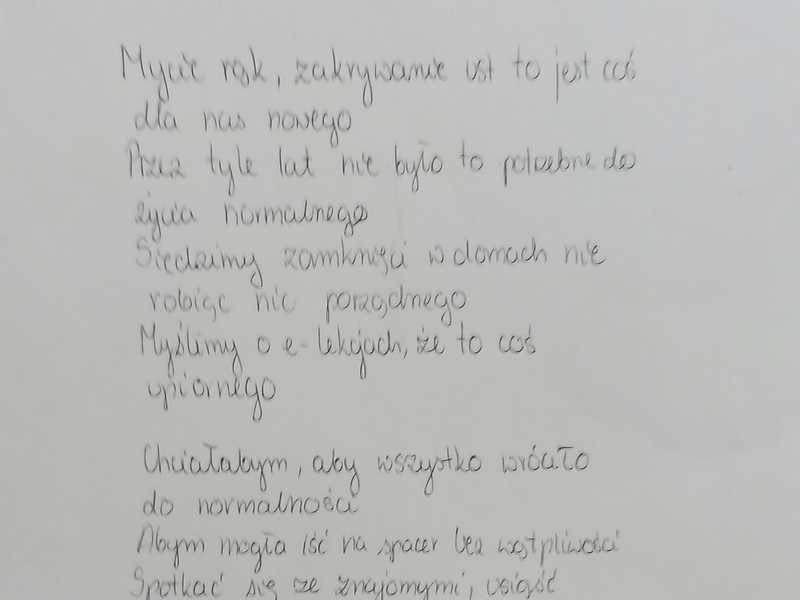 Mycie rąk, zakrywanie ust to jest coś
dla nas nowego
Przez tyle lat nie było to potrzebne do
życia normalnego
Siedzimy zamknięci w domach nie
robiąc nic porządnego
Myślimy o e-lekcjach, że to coś
upiornego
Chciałabym, aby wszystko wróciło
do normalności
Abym mogła iść na spacer bez wątpliwości
Spotkać się ze znajomymi, usiąść